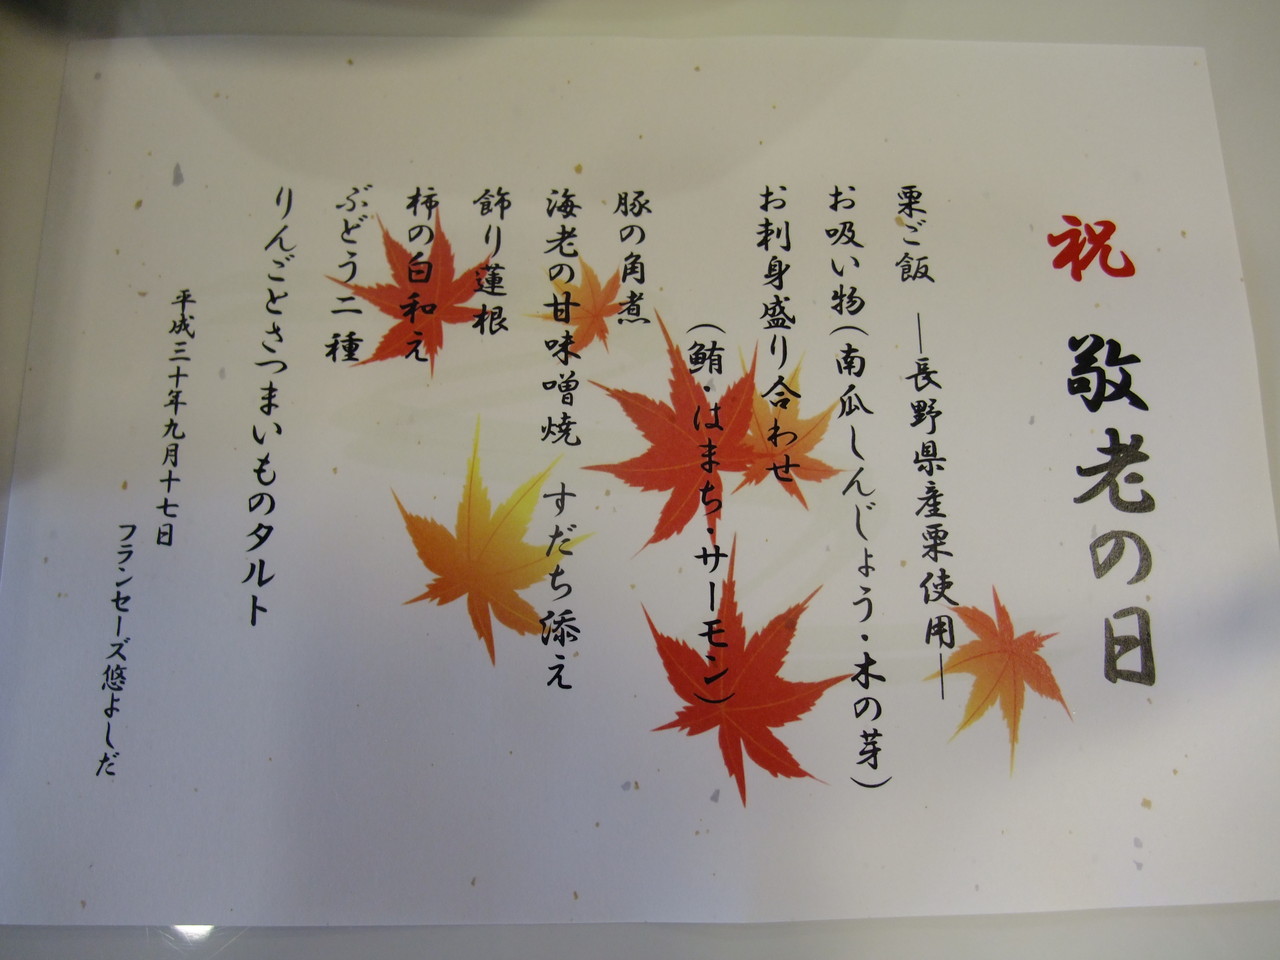 祝 敬老の日
栗ご飯 ―長野県産栗使用―
お吸い物(南瓜しんじょう・木の芽)
お刺身盛り合わせ
(鮪・はまち・サーモン)
豚の角煮
海老の甘味噌焼 すだち添え
飾り蓮根
柿の白和え
ぶどう二種
りんごとさつまいものタルト
平成三十年九月十七日
フランセーズ悠よしだ